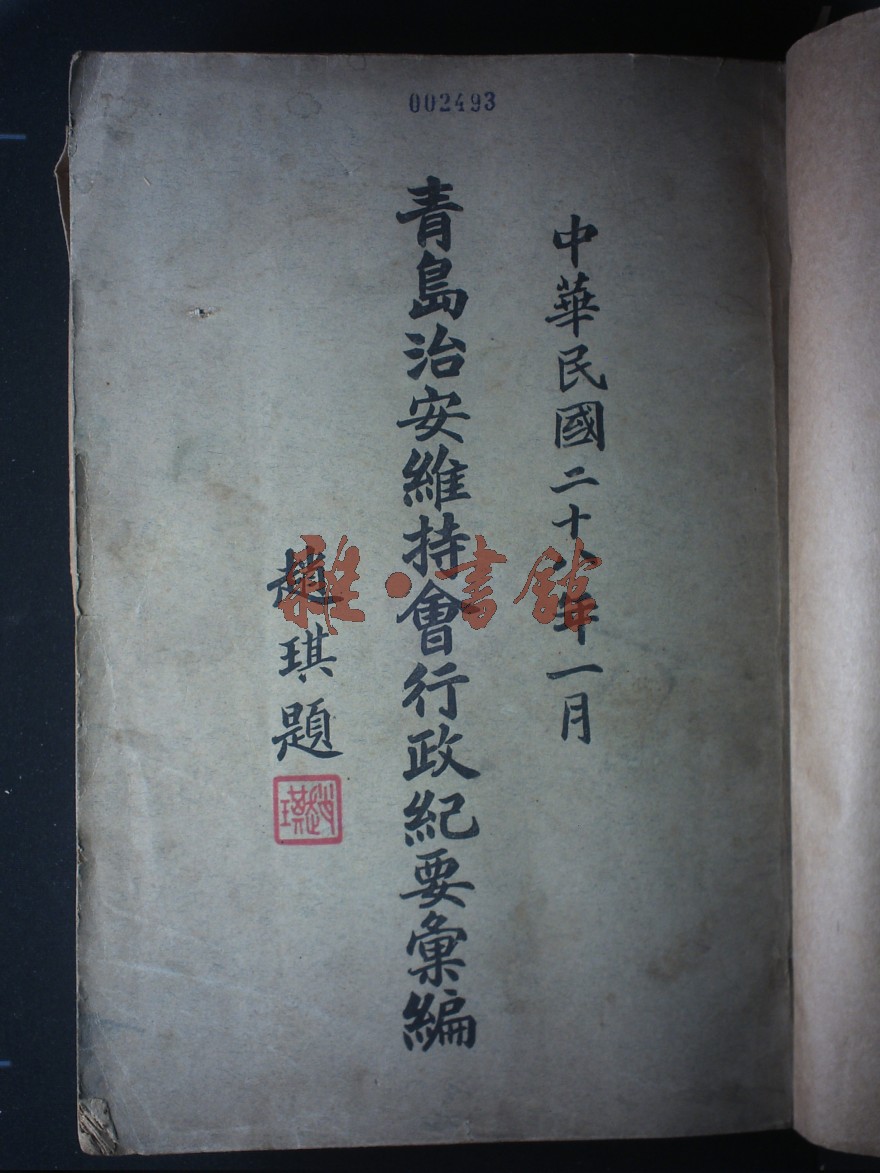 002493
中華民國二十八年一月
青島治安維持會行政紀要彙編
趙琪題
趙琪
雜·書館